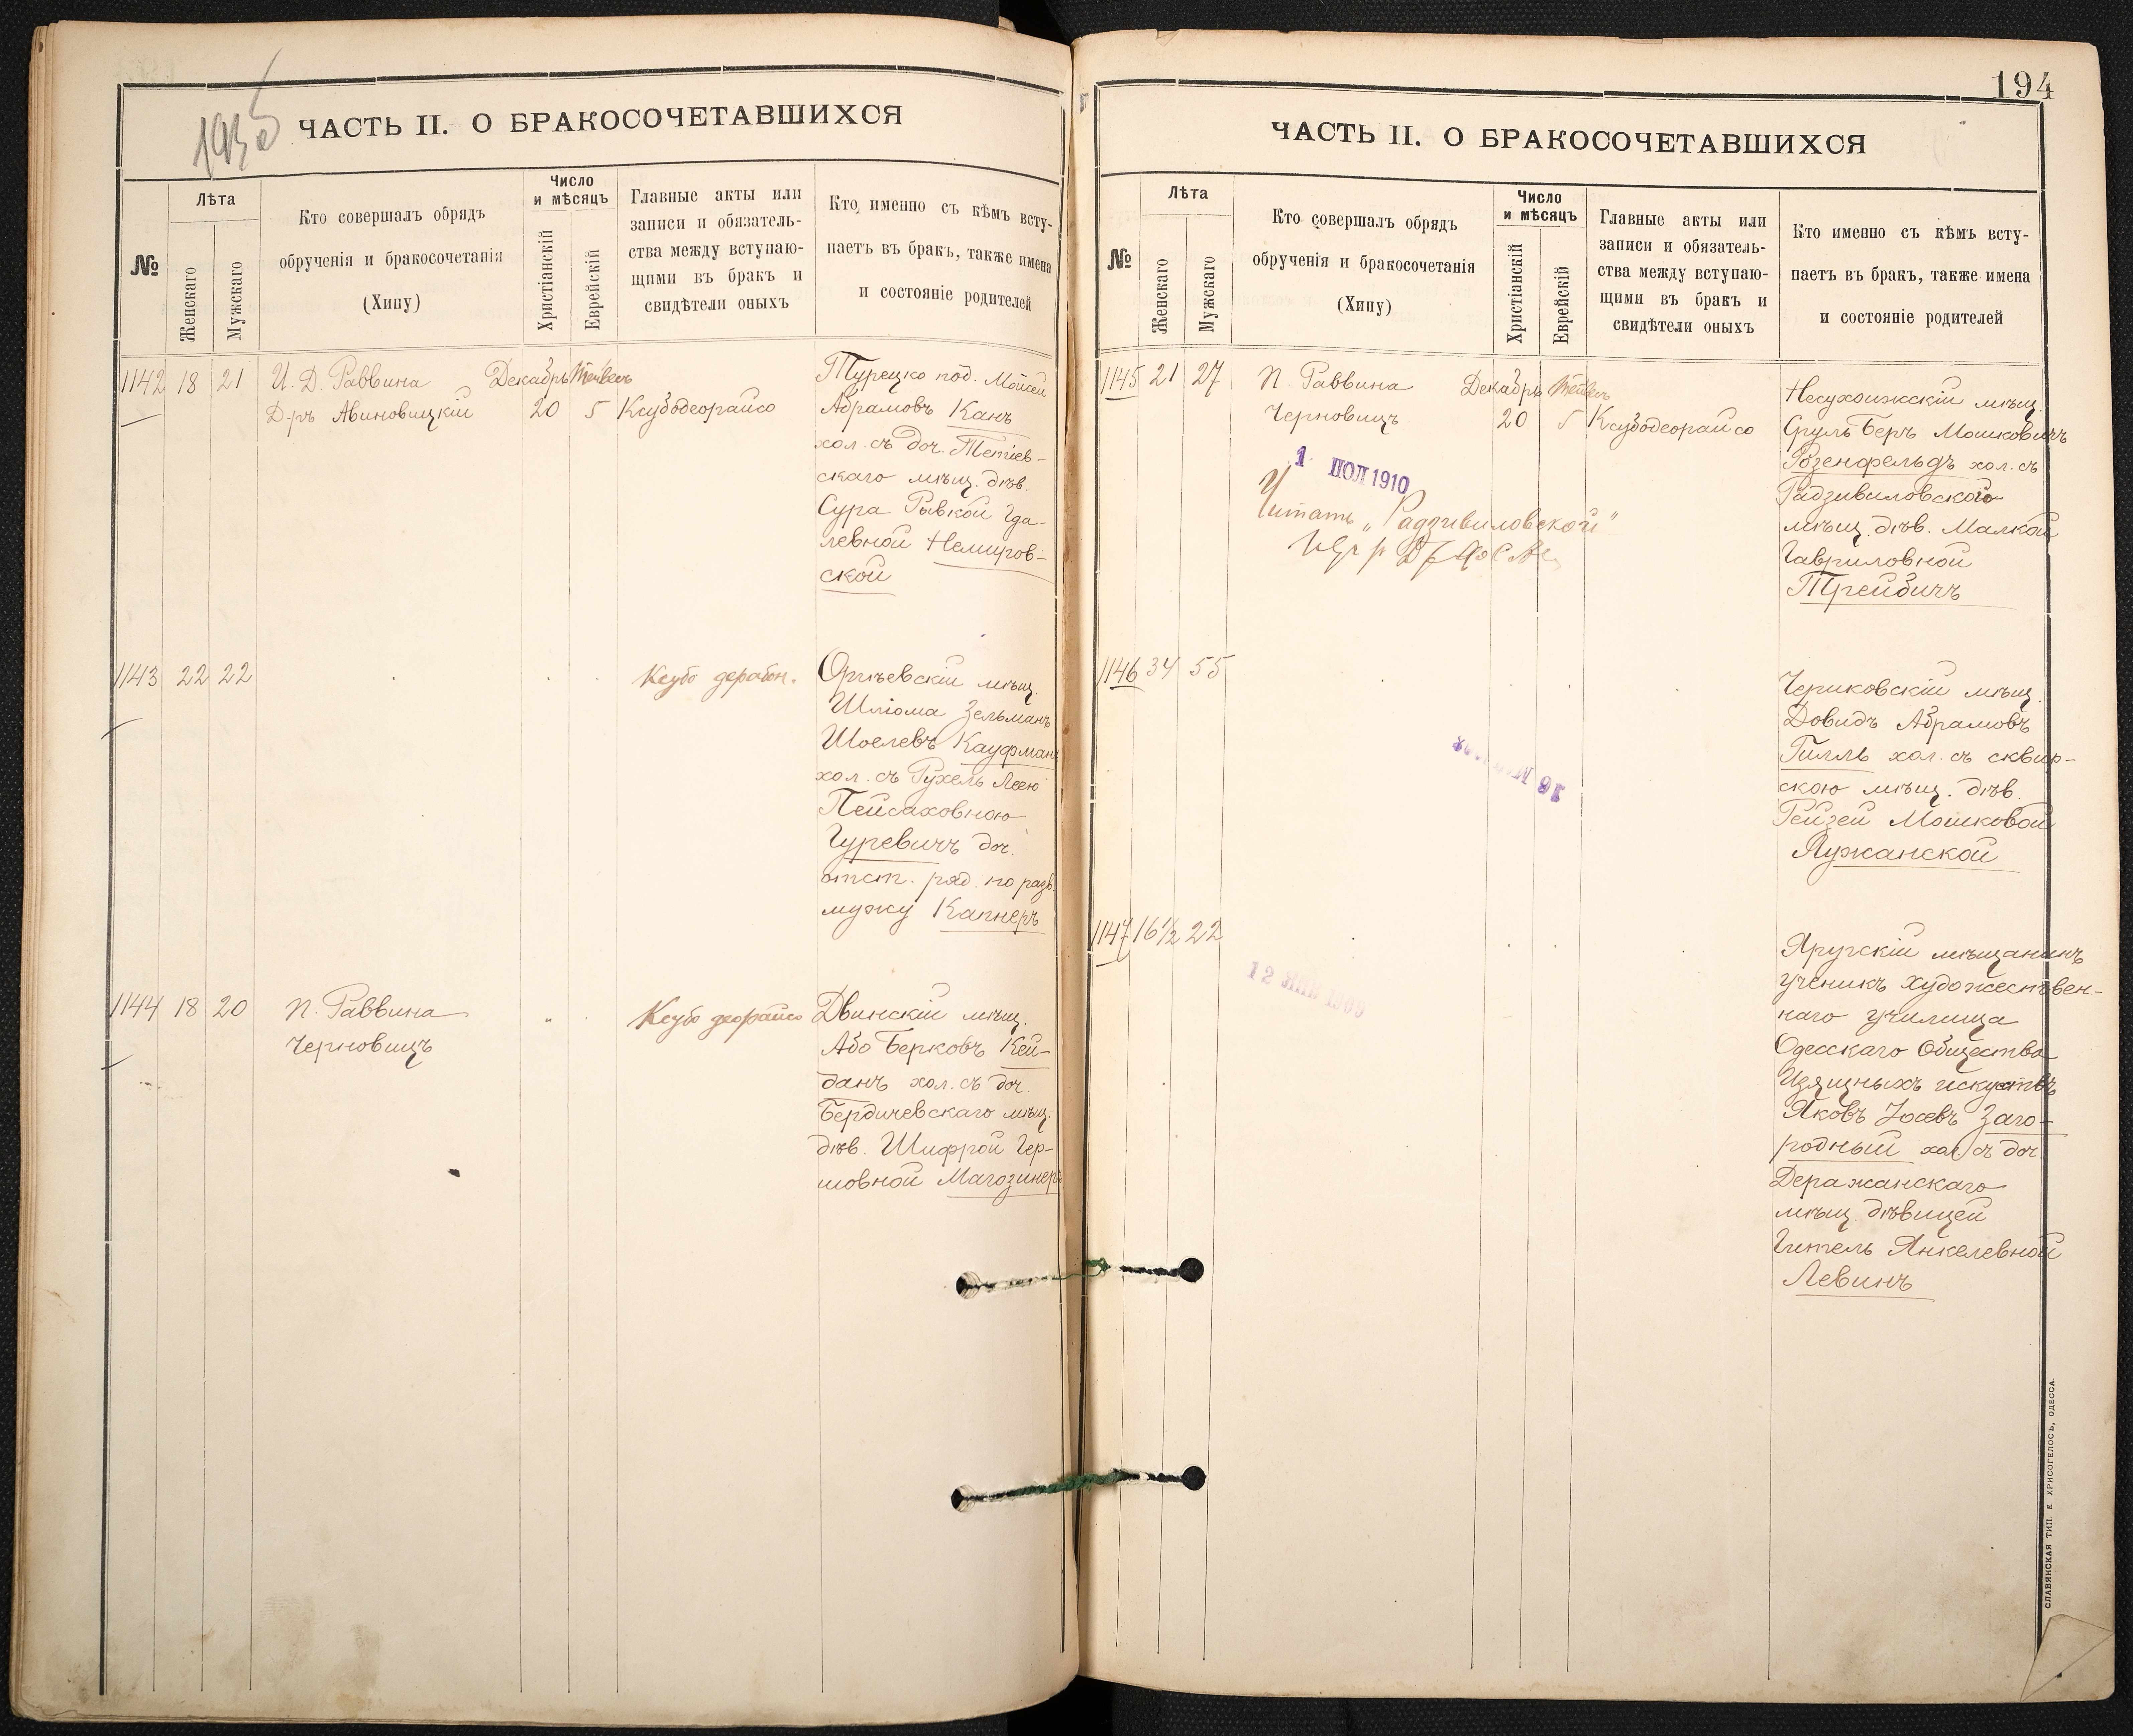 ЧАСТЬ II. О БРАКОСОЧЕТАВШИХСЯ
№
Лѣта
Женскаго
Мужскаго
Кто совершалъ обрядъ
обрученія и бракосочетанія
(Хипу)
Число
и мѣсяцъ
Христіанскій
Еврейскій
Главные акты или
записи и обязатель-
ства между вступаю-
щими въ бракъ и
свидѣтели оныхъ
Кто именно съ кѣмъ всту-
паетъ въ бракъ, также имена
и состояніе родителей
1142 18 21 И. Д. Раввина Декабрь Тейвесъ
Д-ръ Авиновицкій 20 5 Ксубодеорайсо
Турецко под. Мойсей
Абрамовъ Канъ
хол. съ доч. Тетіев-
скаго мѣщ. дѣв.
Сура Рывкой Гда-
левной Немиров-
ской
1143 22 22 Ксубо дерабон.
Оргѣевскій мѣщ.
Шліома Зельманъ
Шоелевъ Кауфманъ
хол. съ Рухель Леею
Пейсаховною
Гуревичъ доч.
отст. ряд. по разв.
мужу Капнеръ
1144 18 20 П. Раввина Ксубо деорайсо
Черновицъ
Двинскій мѣщ.
Або Берковъ Кей-
данъ хол. съ доч.
Бердичевскаго мѣщ.
дѣв. Шифрой Гер-
шовной Магозинеръ
194
ЧАСТЬ II. О БРАКОСОЧЕТАВШИХСЯ
№
Лѣта
Женскаго
Мужскаго
Кто совершалъ обрядъ
обрученія и бракосочетанія
(Хипу)
Число
и мѣсяцъ
Христіанскій
Еврейскій
Главные акты или
записи и обязатель-
ства между вступаю-
щими въ бракъ и
свидѣтели оныхъ
Кто именно съ кѣмъ всту-
паетъ въ бракъ, также имена
и состояніе родителей
1145 21 27 П. Раввина Декабрь Тейвесъ
Черновицъ 20 5 Ксубодеорайсо
1 ІЮЛ 1910
Читать „Радзивиловской"
Несухоижскій мѣщ.
Сруль Беръ Мошковичъ
Розенфельдъ хол. съ
Радзивиловского
мѣщ. дѣв. Малкой
Гавриловной
Трейбичъ
1146 34 55
Чериковскій мѣщ.
Довидъ Абрамовъ
Гилль хол. съ сквир-
скою мѣщ. дѣв.
Рейзей Мошковой
Лужанской
1147 16½ 22
12 ЯНВ
Яругскій мѣщанинъ
ученикъ художествен-
наго училища
Одесскаго Общества
Изящныхъ искуствъ
Яковъ Іосевъ Заго-
родный хол. съ доч.
Деражанскаго
мѣщ. дѣвицей
Гитель Янкелевной
Левинъ
СЛАВЯНСКАЯ ТИП. Е ХРИСОГЕЛОСЪ, ОДЕССА.